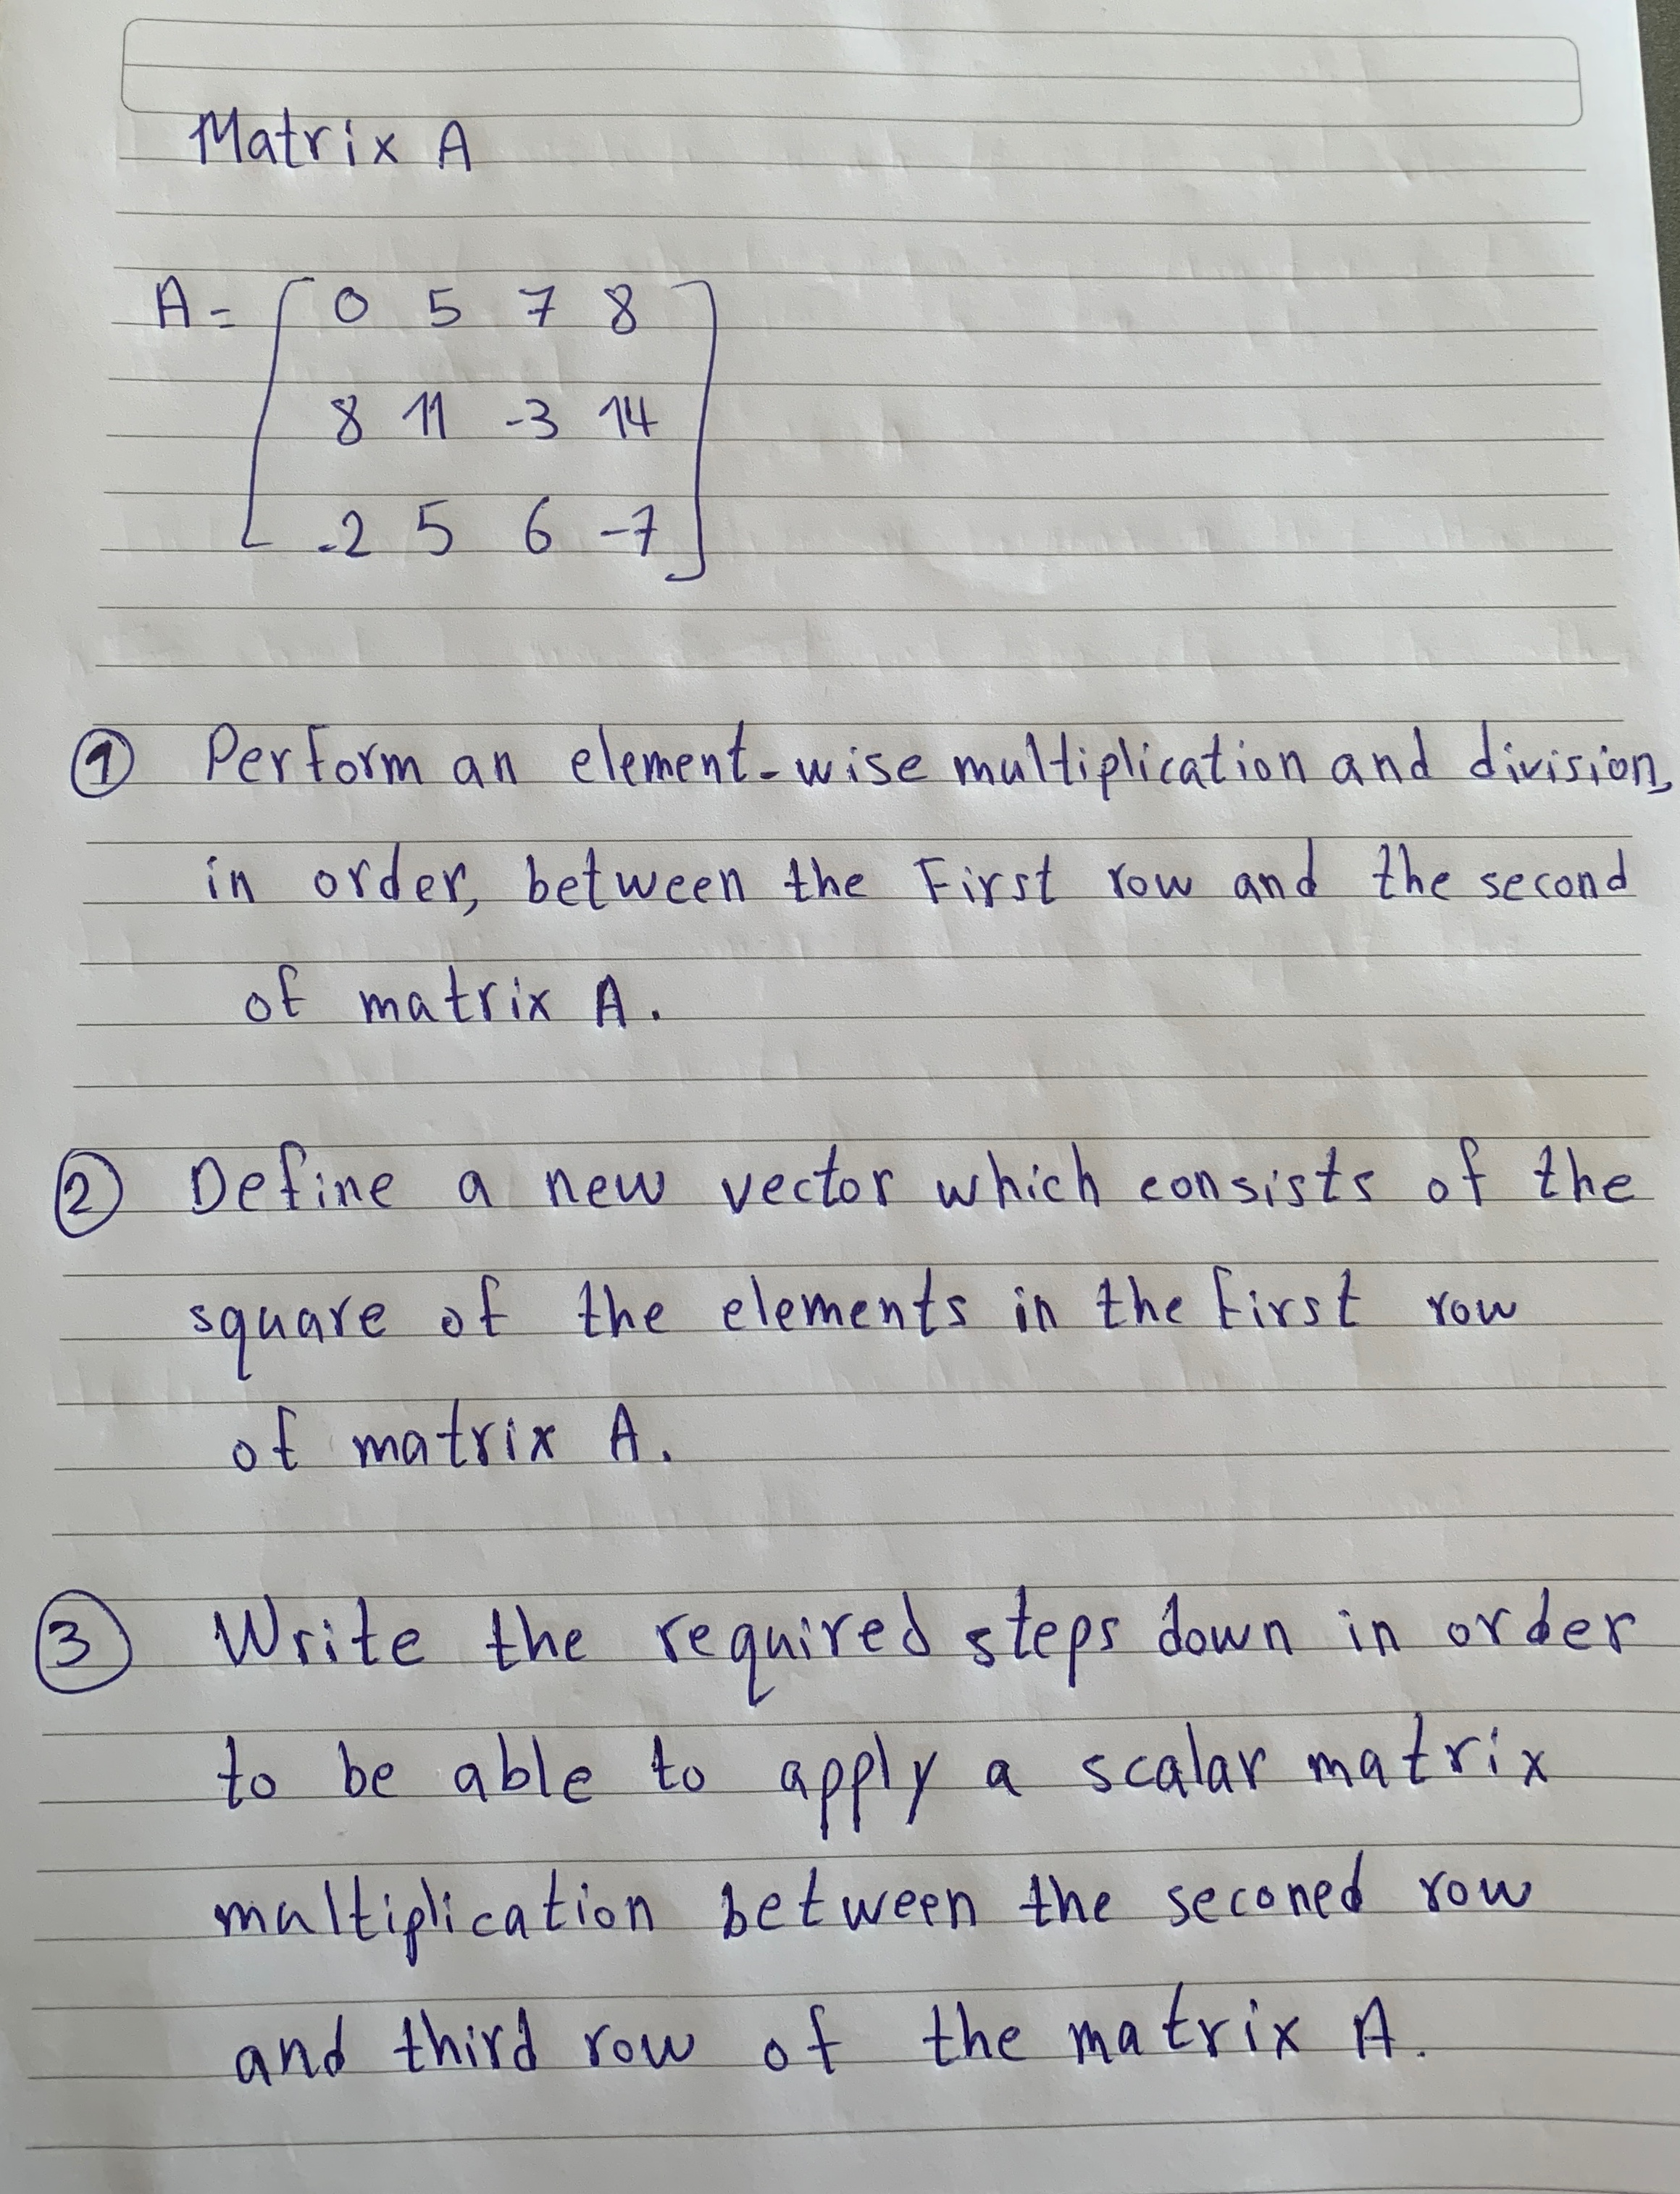 Matrix A
A = [ 0 5 7 8
8 11 -3 14
-2 5 6 -7 ]
① Perform an element-wise multiplication and division,
in order, between the First row and the second
of matrix A.
② Define a new vector which consists of the
square of the elements in the first row
of matrix A.
③ Write the required steps down in order
to be able to apply a scalar matrix
multiplication between the seconed row
and third row of the matrix A.